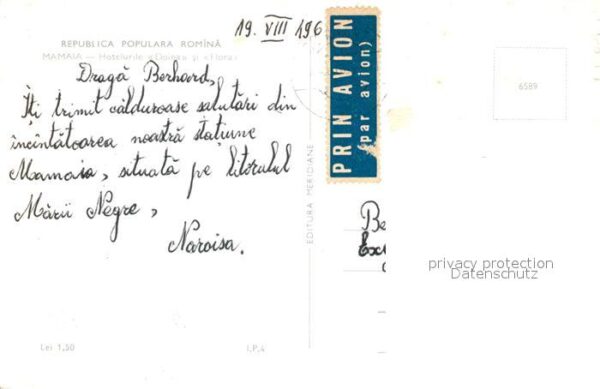 19. VIII 196
REPUBLICA POPULARA ROMÎNĂ
MAMAIA — Hotelurile «Doina» și «Flora»
Dragă Berhard,
Îți trimit călduroase salutări din
încîntătoarea noastră stațiune
Mamaia, situată pe litoralul
Mării Negre,
Naroisa.
Lei 1,50
I.P.4
EDITURA MERIDIANE
PRIN AVION
(par avion)
6589
Be
Ex
privacy protection
Datenschutz